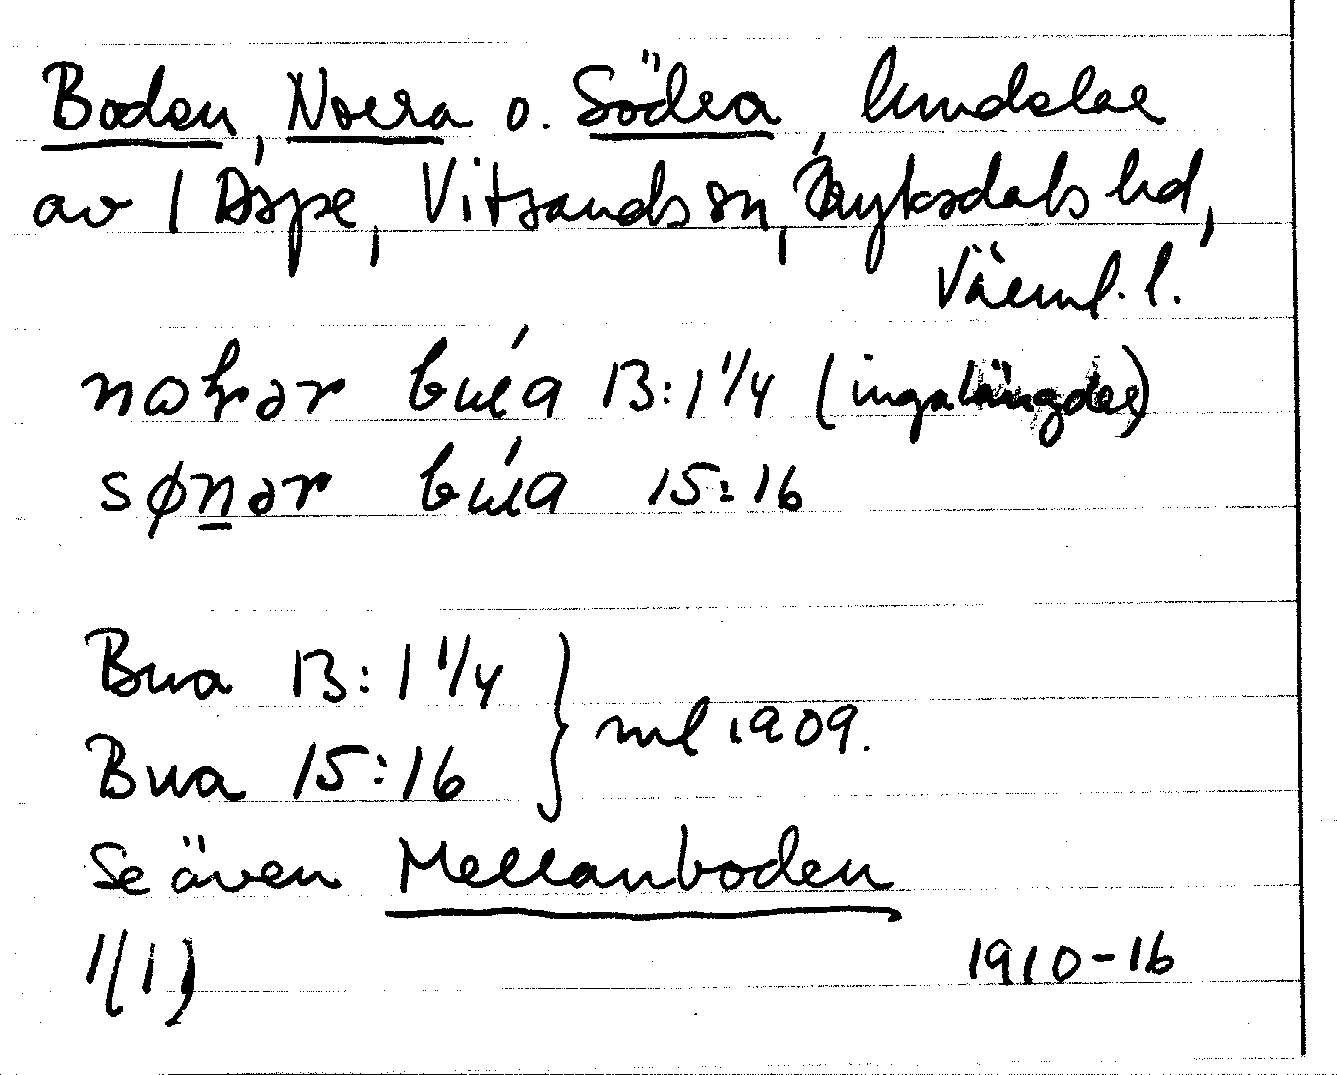 Boden, Norra o. Södra, lundelar
av 1 Aspe, Vitsands sn, Fryksdals hd,
Värml. l.
bu̍a 13:1 1/4 (inga längder)
bu̍a 15:16
Bua 13:1 1/4
Bua 15:16 } ml 1909.
Se även Mellanboden
1/1)
1910-16